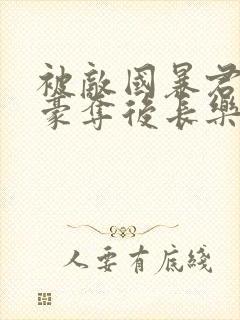 被敵國暴君
豪奪後長樂
人要有底綫